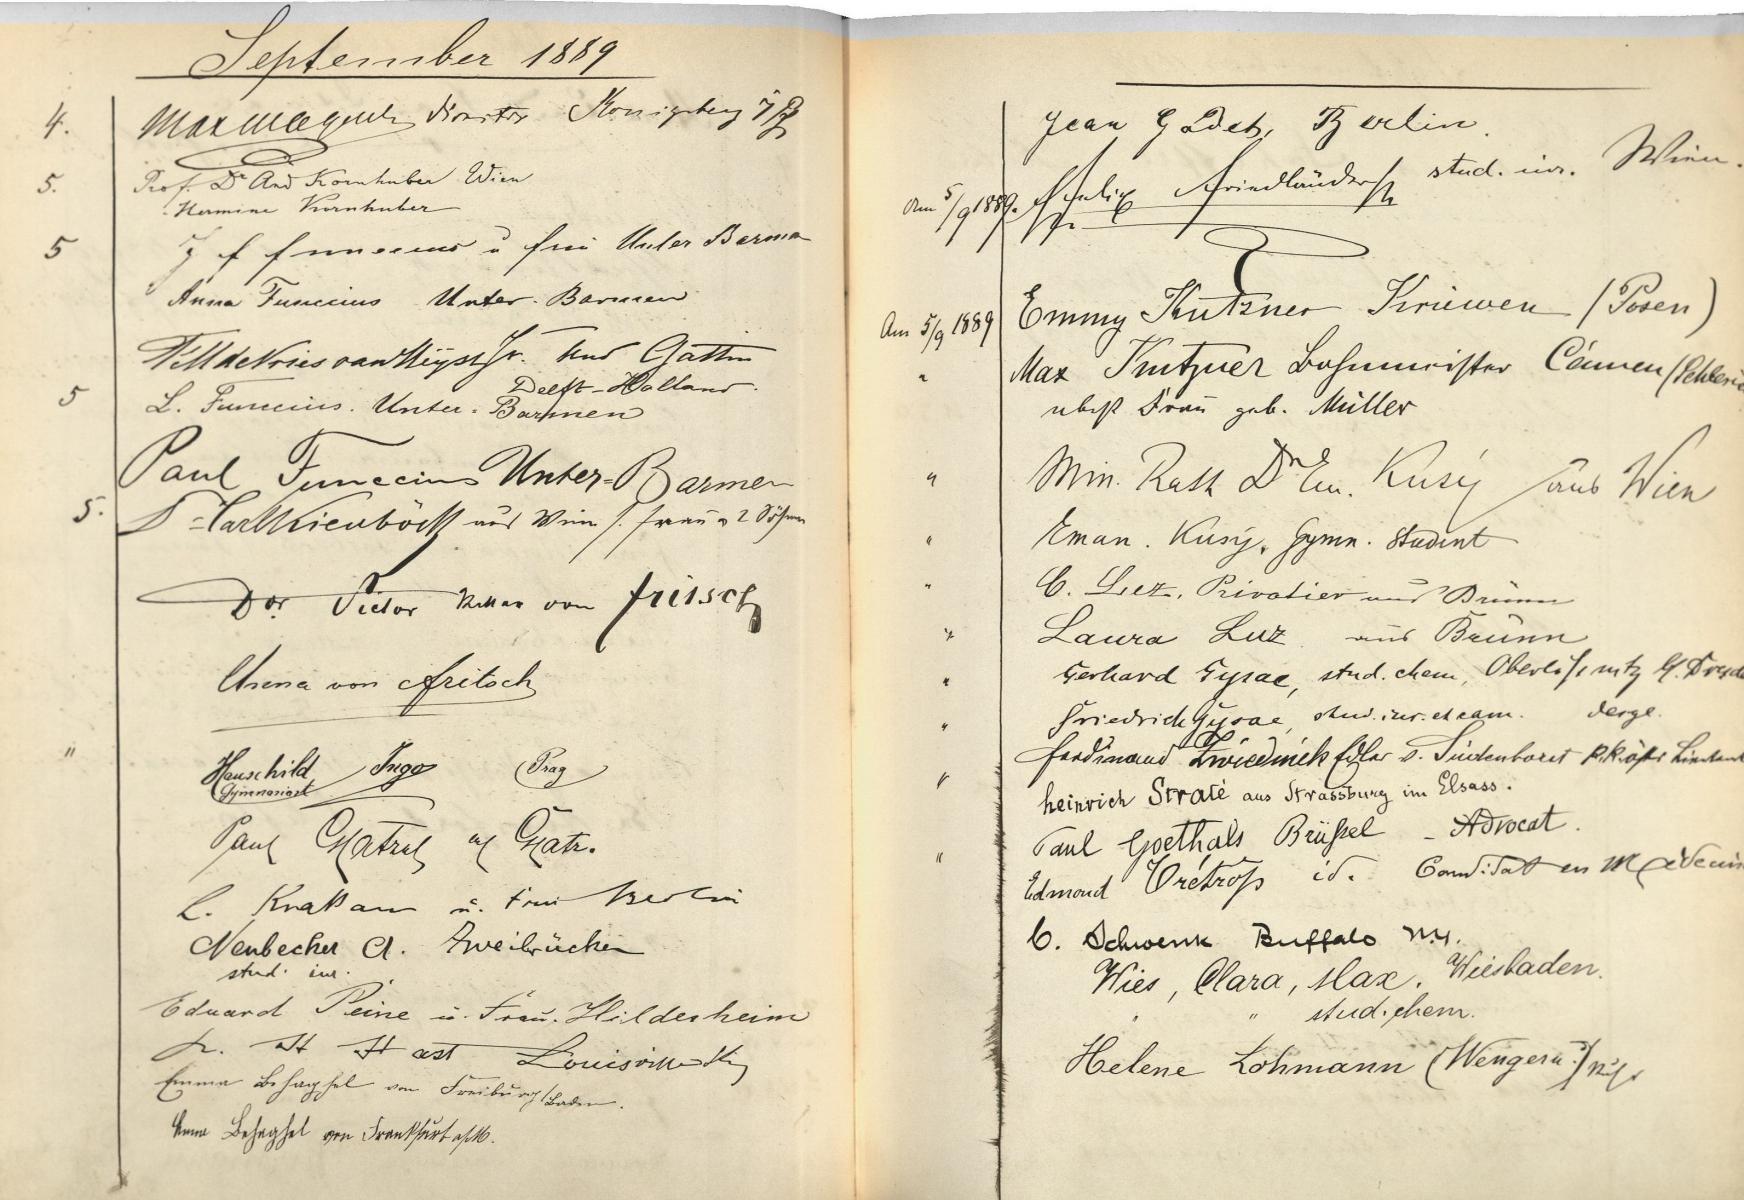 September 1889
4. Max Director Königsberg
5. Prof. Dr And Kornhuber Wien
Hermine Kornhuber
5 Funccius u Frau Unter Barmen
Anna Funccius Unter-Barmen
und Gattin
Delft-Holland.
5 L. Funccius. Unter-Barmen
Paul Funccius Unter-Barmen
5. Dr Carl Kienböck aus Wien s. Frau u 2 Söhne
Dor. Victor Ritter von Fritsch
Anna von Fritsch
" Hauschild Ingo Prag
Gymnasiast
Paul
L. Krakau u. Frau Berlin
Neubecher A. Zweibrücken
stud. iur.
Eduard Peine u. Frau. Hildesheim
Louisville Ky
Emma Behaghel von Freiburg/Baden.
Anna Behaghel von Frankfurt a/M.
Jean Berlin.
Am 5/9 1889. Felix Friedländer stud. iur. Wien.
Am 5/9 1889 Emmy Kutzner Kriewen (Posen)
" Max Kutzner
nebst Frau geb. Müller
" Min. Rath Dr Em. Kusý aus Wien
" Eman. Kusý, Gymn. Student
" C. Luz, Privatier aus Brünn
" Laura Luz aus Brünn
" Gerhard Gysae, stud. chem, Oberlößnitz b/. Dresden
" Friedrich Gysae, stud. iur. et cam. desgl.
Ferdinand Zwiedinek Edler v. Südenhorst
" heinrich Straté aus Strassburg im Elsass.
Paul Goethals Brüssel - Advocat.
" Edmond id. Candidat en Médecine
C. Schwenk Buffalo N.Y.
Wies, Clara, Max. Wiesbaden.
" " stud. chem.
Helene Lohmann